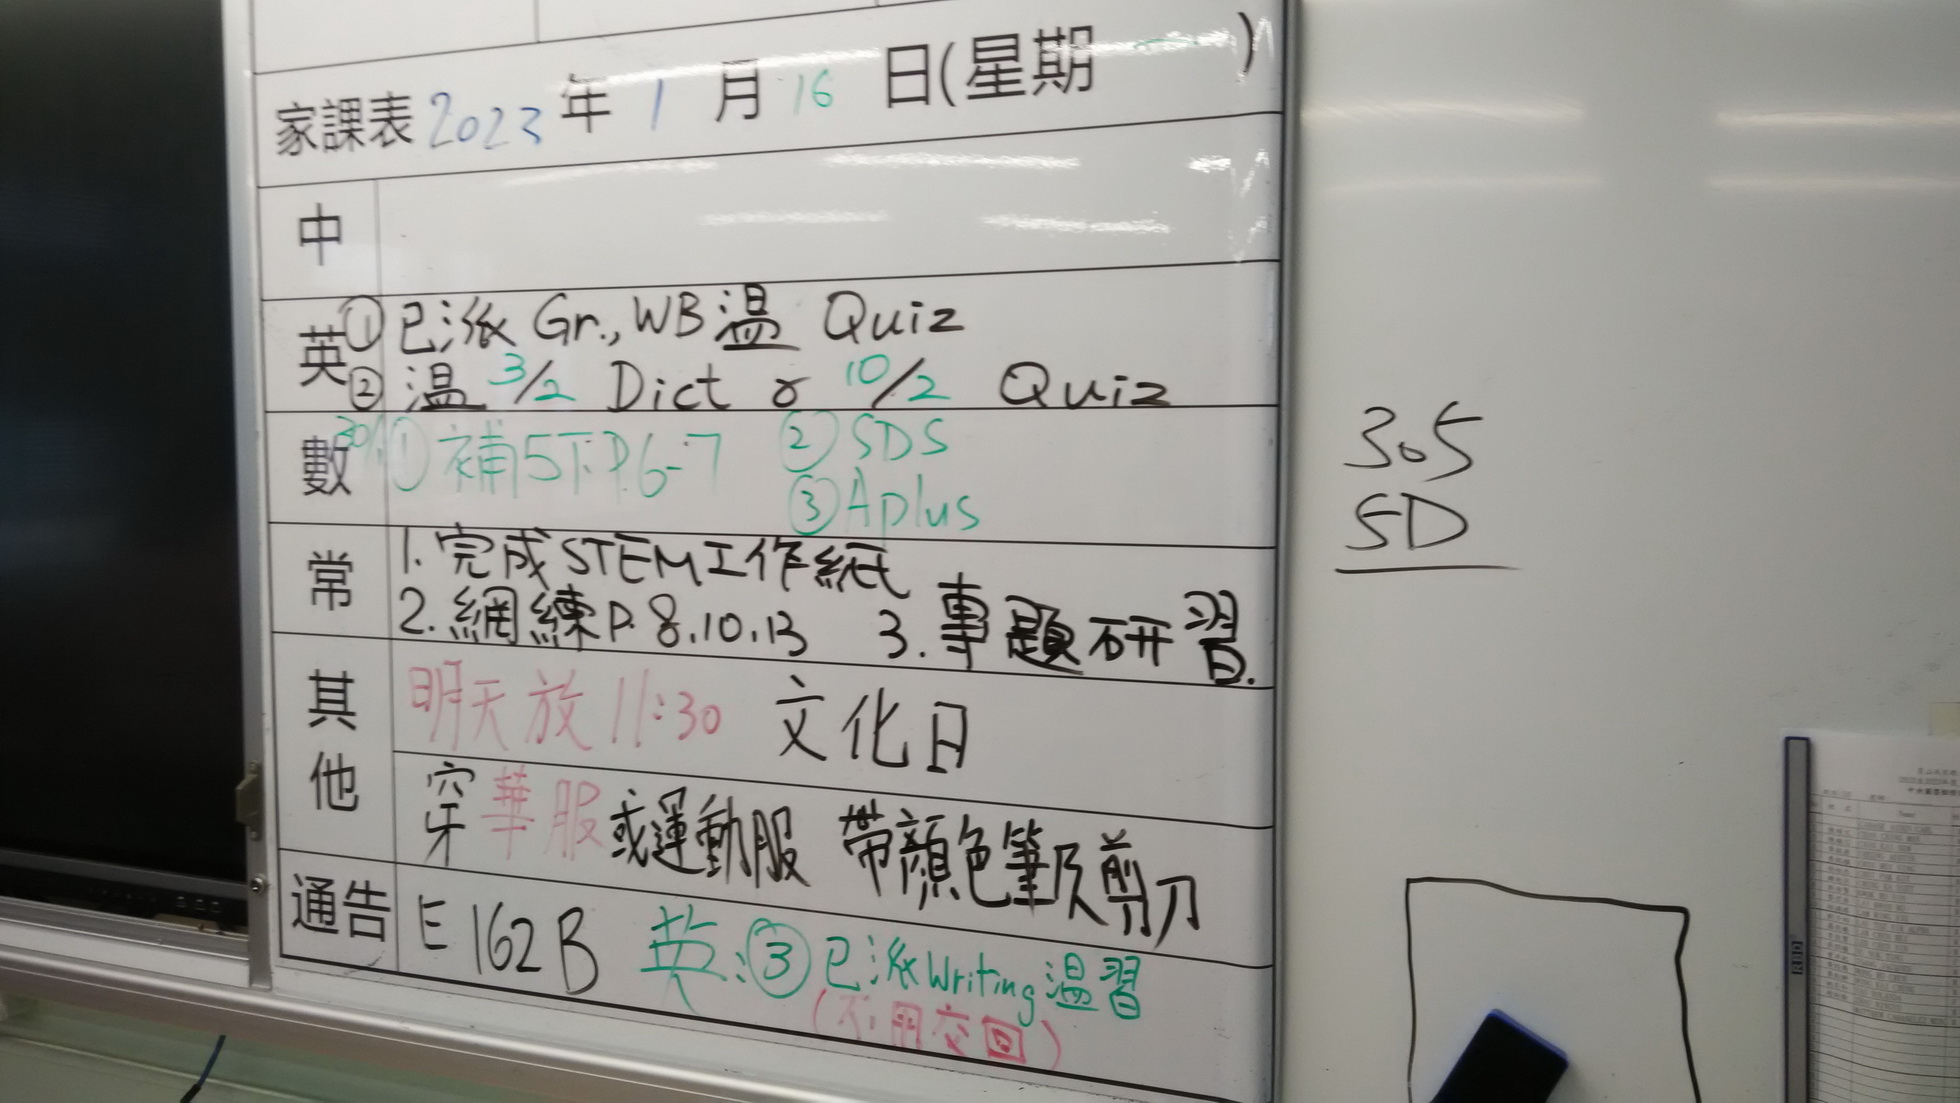 家課表 2023 年 1 月 16 日(星期 一 )
中
英 ① 已派 Gr., WB 温 Quiz
② 温 3/2 Dict & 10/2 Quiz
數 30/1 ① 補5下P.6-7 ② SDS
③ Aplus
常 1. 完成STEM工作紙
2. 網練P. 8.10.13 3. 專題研習.
其他 明天放 11:30 文化日
穿華服或運動服 帶顏色筆及剪刀
通告 E162B 英:③已派Writing温習
(不用交回)
305
5D